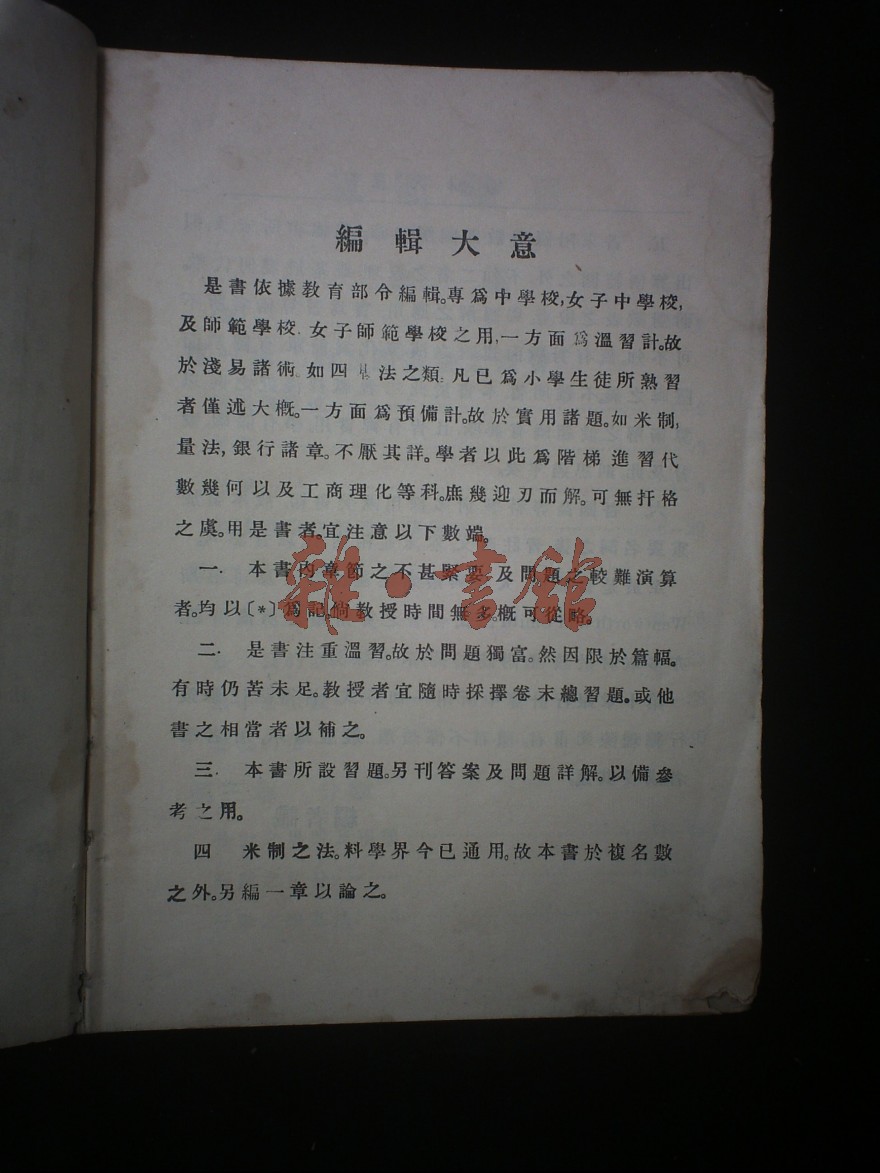 編輯大意
是書依據教育部令編輯。專爲中學校,女子中學校,
及師範學校.女子師範學校之用,一方面爲溫習計。故
於淺易諸術.如四法之類.凡已爲小學生徒所熟習
者僅述大概。一方面爲預備計。故於實用諸題。如米制,
量法,銀行諸章。不厭其詳。學者以此爲階梯進習代
數幾何以及工商理化等科。庶幾迎刃而解。可無扞格
之虞。用是書者。宜注意以下數端。
一. 本書內章節之不甚緊要,及問題之較難演算
者。均以〔*〕爲記。倘教授時間無多。概可從略。
二. 是書注重溫習。故於問題獨富。然因限於篇幅。
有時仍苦未足。教授者宜隨時採擇卷末總習題。或他
書之相當者以補之。
三. 本書所設習題。另刊答案及問題詳解。以備參
考之用。
四 米制之法。科學界今已通用。故本書於複名數
之外。另編一章以論之。
雜·書館